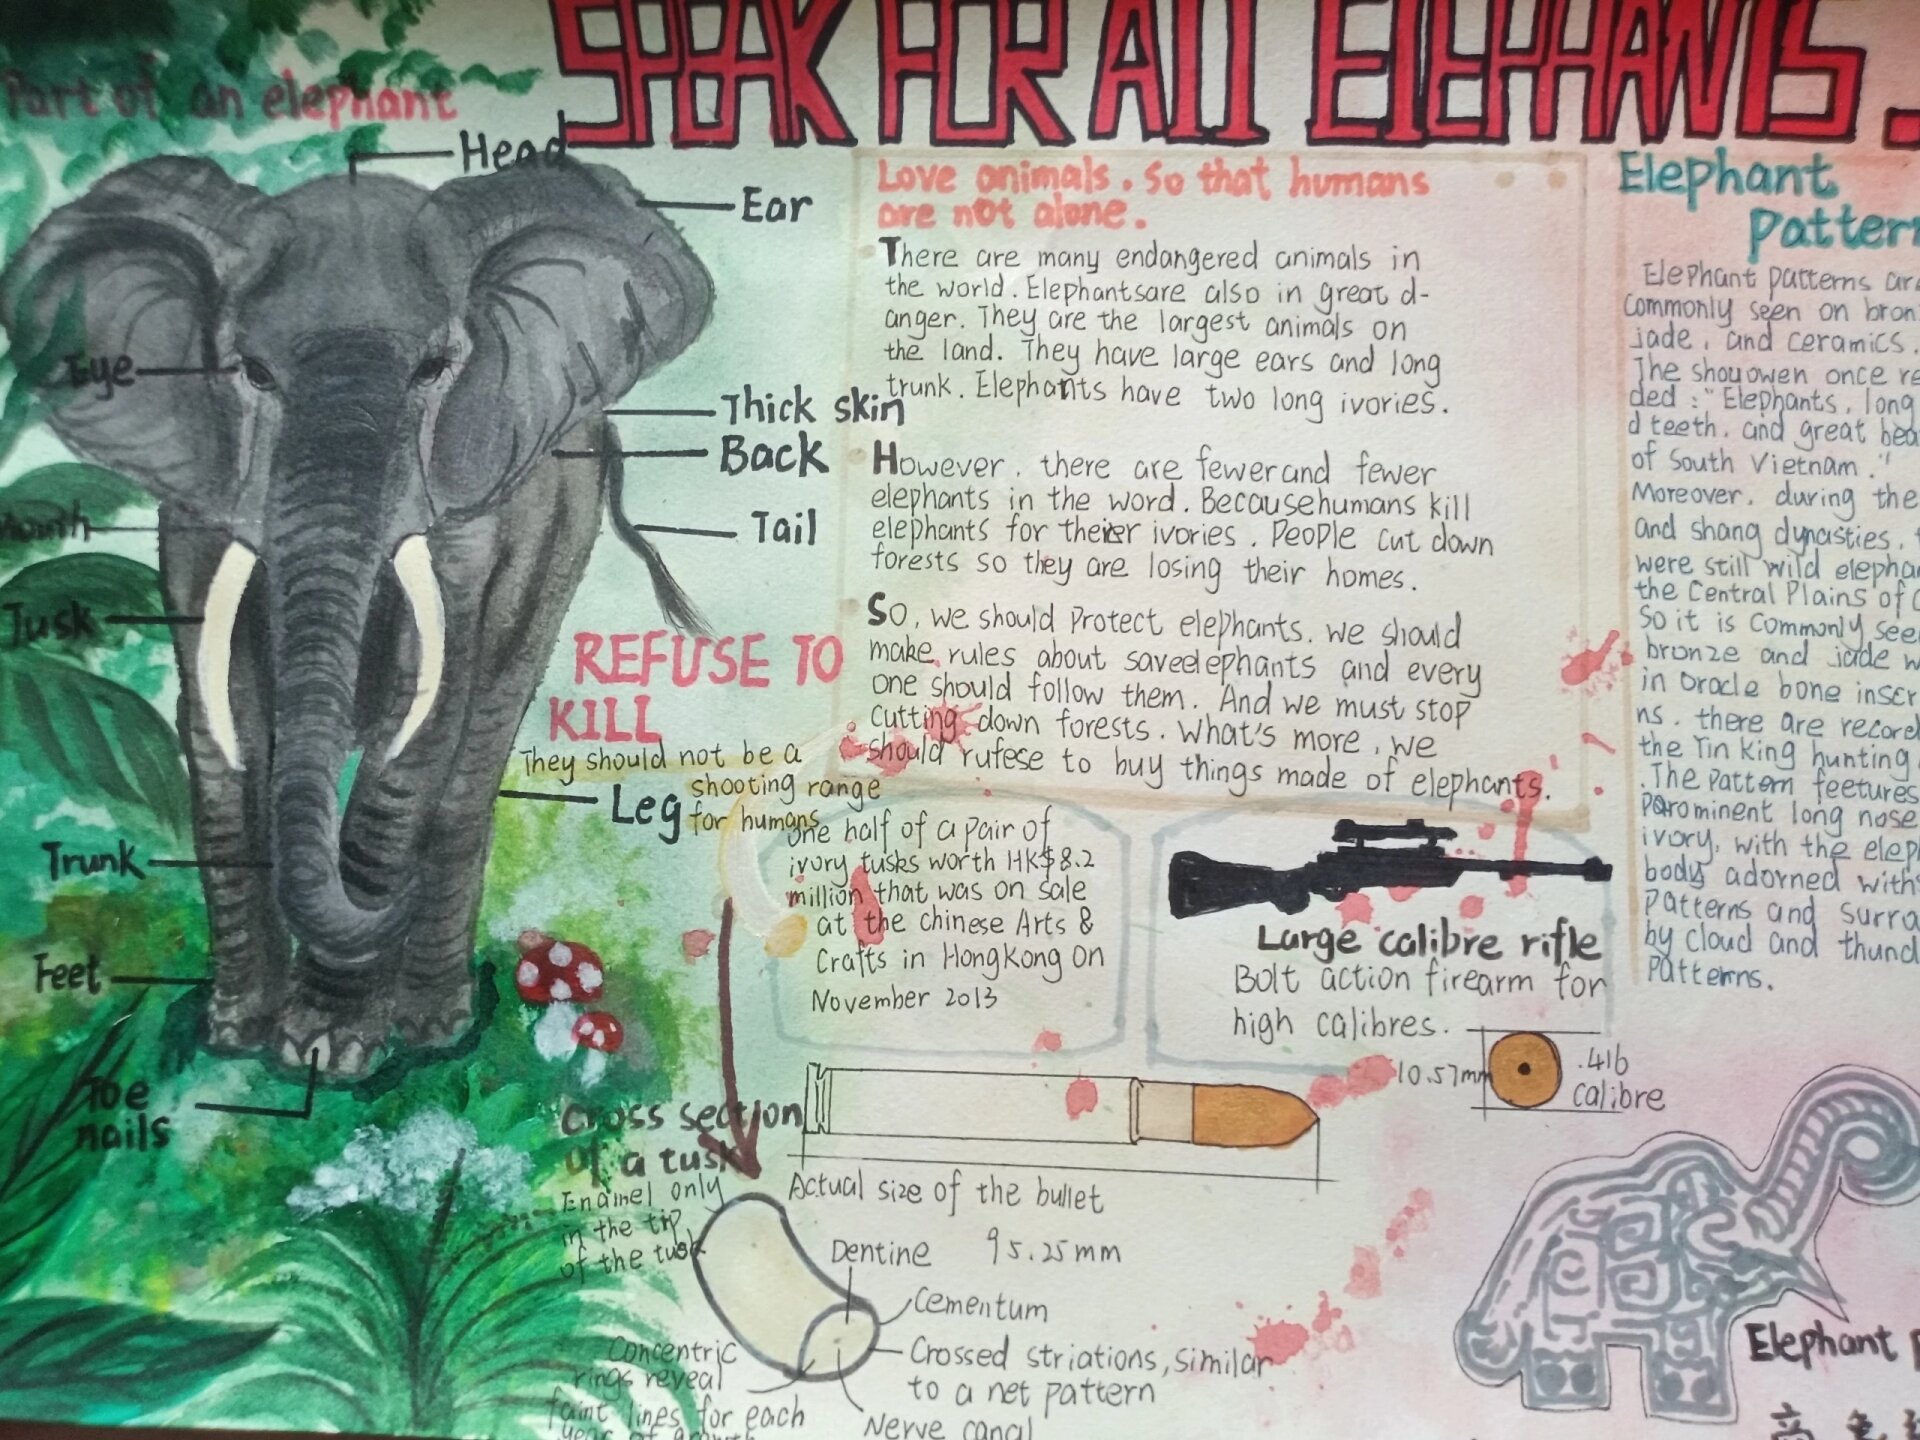 SPEAK FOR ALL ELEPHANTS.
Part of an elephant
Head
Ear
Eye
Thick skin
Back
Mouth
Tail
Tusk
Leg
Trunk
Feet
Toe
nails
Love animals. So that humans
are not alone.
There are many endangered animals in
the world. Elephantsare also in great d-
anger. They are the largest animals on
the land. They have large ears and long
trunk. Elephants have two long ivories.
However, there are fewer and fewer
elephants in the word. Becausehumans kill
elephants for theirer ivories. People cut down
forests so they are losing their homes.
So, we should Protect elephants. we should
make rules about saveelephants and every
one should follow them. And we must stop
cutting down forests. What's more, we
should rufese to buy things made of elephants.
REFUSE TO
KILL
They should not be a
shooting range
for humans
one half of a pair of
ivory tusks worth HK$8.2
million that was on sale
at the chinese Arts &
Crafts in HongKong on
November 2013
Large calibre rifle
Bolt action firearm for
high calibres.
10.57mm
.416
calibre
Actual size of the bullet
95.25mm
Cross section
of a tusk
Enamel only
in the tip
of the tusk
Dentine
Cementum
Crossed striations, similar
to a net pattern
Nerve canal
Concentric
rings reveal
faint lines for each
year of growth
Elephant
Pattern
Elephant patterns are
Commonly seen on bron
jade, and ceramics.
The shouowen once re
ded: "Elephants, long
d teeth, and great bea
of South Vietnam."
Moreover, during the
and shang dynasties,
were still wild elepha
the Central Plains of
So it is Commonly see
bronze and jade w
in Oracle bone inscr
ns. there are record
the Yin King hunting
.The Pattern feetures
Parominent long nose
ivory, with the elep
body adorned with
Patterns and surro
by cloud and thund
Patterns.
Elephant